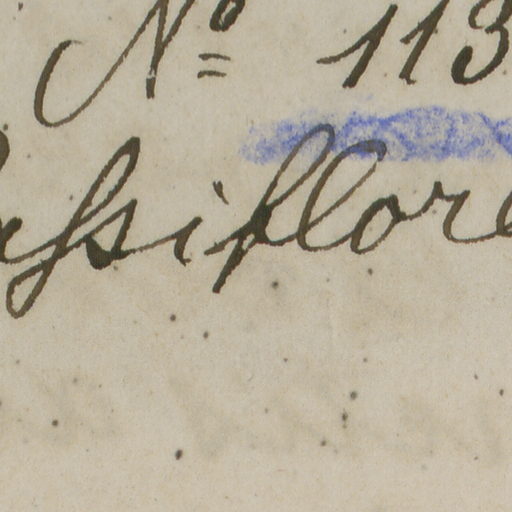 Nº 113
assiflore